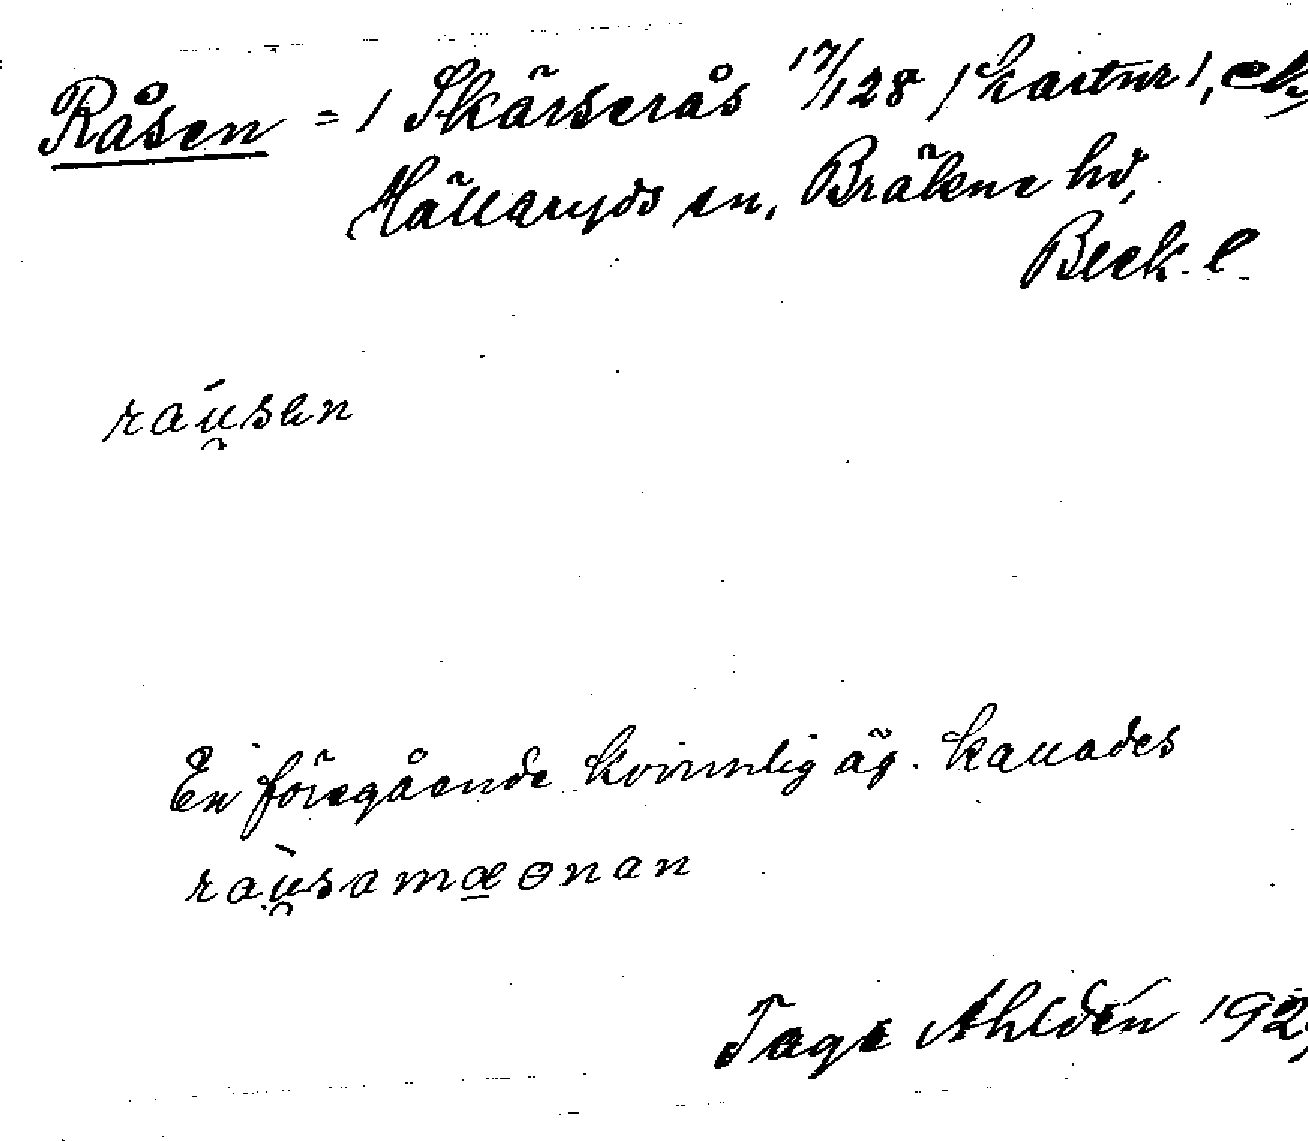 Råsen = 1 Skärserås 17/128 /kartnr 1,
Hällaryds sn, Bräkne hd,
Blek. l.
rau̯sen
En föregående kvinnlig äg. kallades
rau̯samœnan
Tage Ahldén 192